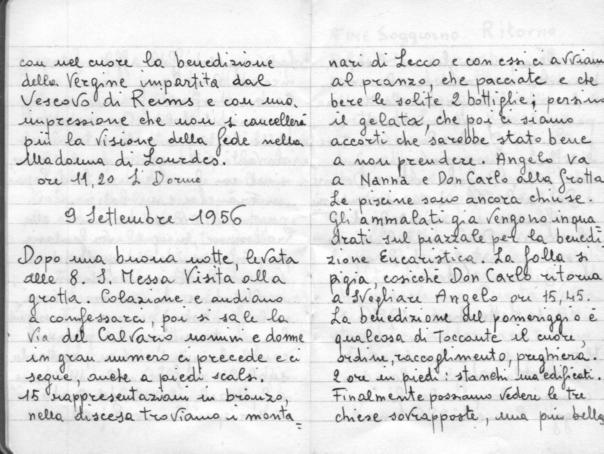 con nel cuore la benedizione
della Vergine impartita dal
Vescovo di Reims e con una
impressione che non si cancellerà
più la visione della fede nella
Madonna di Lourdes.
ore 11,20 Si Dorme
9 Settembre 1956
Dopo una buona notte, levata
alle 8. S. Messa Visita alla
grotta. Colazione e andiamo
a confessarci, poi si sale la
Via del Calvario uomini e donne
in gran numero ci precede e ci
segue, anche a piedi scalzi.
15 rappresentazioni in bronzo,
nella discesa troviamo i monta=
FINE Soggiorno Ritorno
nari di Lecco e con essi ci avviamo
al pranzo, che pacciate e che
bere le solite 2 bottiglie; persino
il gelato, che poi ci siamo
accorti che sarebbe stato bene
a non prendere. Angelo va
a Nanna e Don Carlo alla grotta
Le piscine sono ancora chiuse.
Gli ammalati già vengono inqua
drati sul piazzale per la benedi
zione Eucaristica. La folla si
pigia, cosicché Don Carlo ritorna
a svegliare Angelo ore 15,45.
La benedizione del pomeriggio è
qualcosa di Toccante il cuore,
ordine, raccoglimento, preghiera.
2 ore in piedi: stanchi ma edificati.
Finalmente possiamo vedere le tre
chiese sovrapposte, una più bella